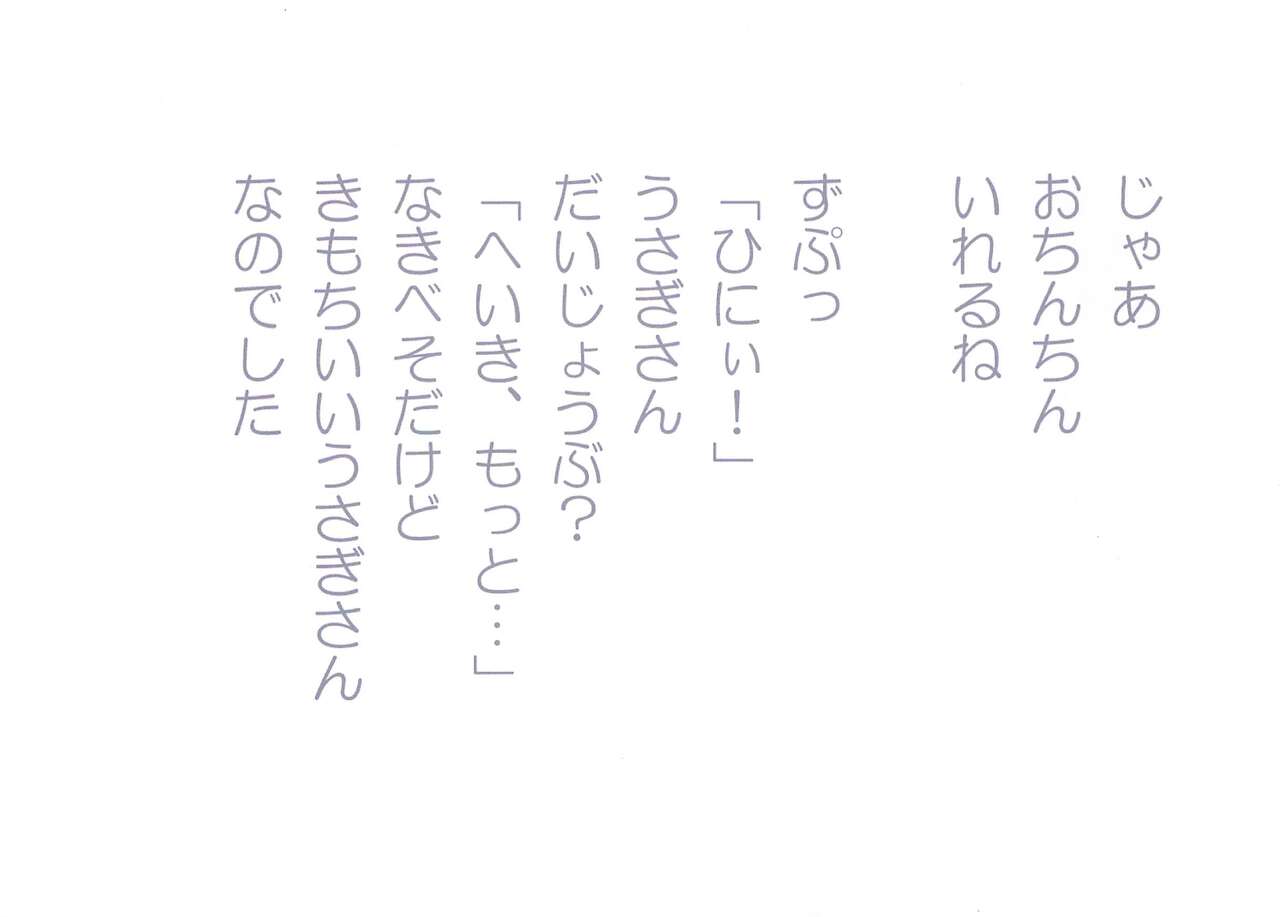 じゃあ
おちんちん
いれるね
ずぷっ
「ひにぃ！」
うさぎさん
だいじょうぶ？
「へいき、もっと…」
なきべそだけど
きもちいいうさぎさん
なのでした